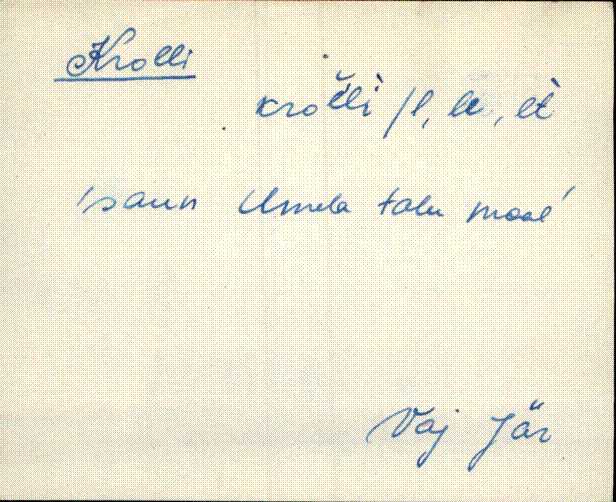 Krolli
kro͔l̆l̀i /l, le, èt
'saun Umela talu maal'
Vaj Jär